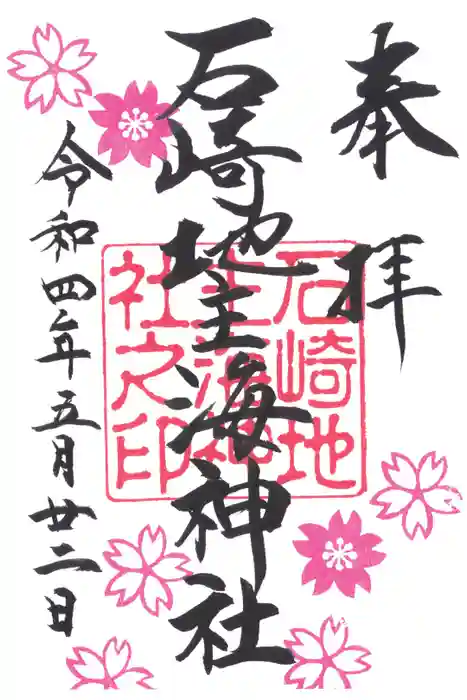 奉拝
石崎地主海神社
石崎地
主海神
社之印
令和四年五月廿二日